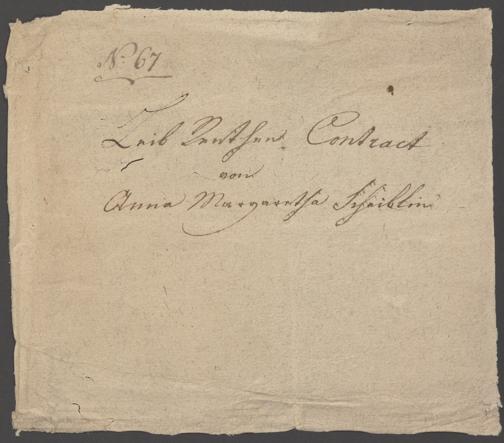 No: 67
Leib Renthen Contract
von
Anna Margaretha Scheiblin